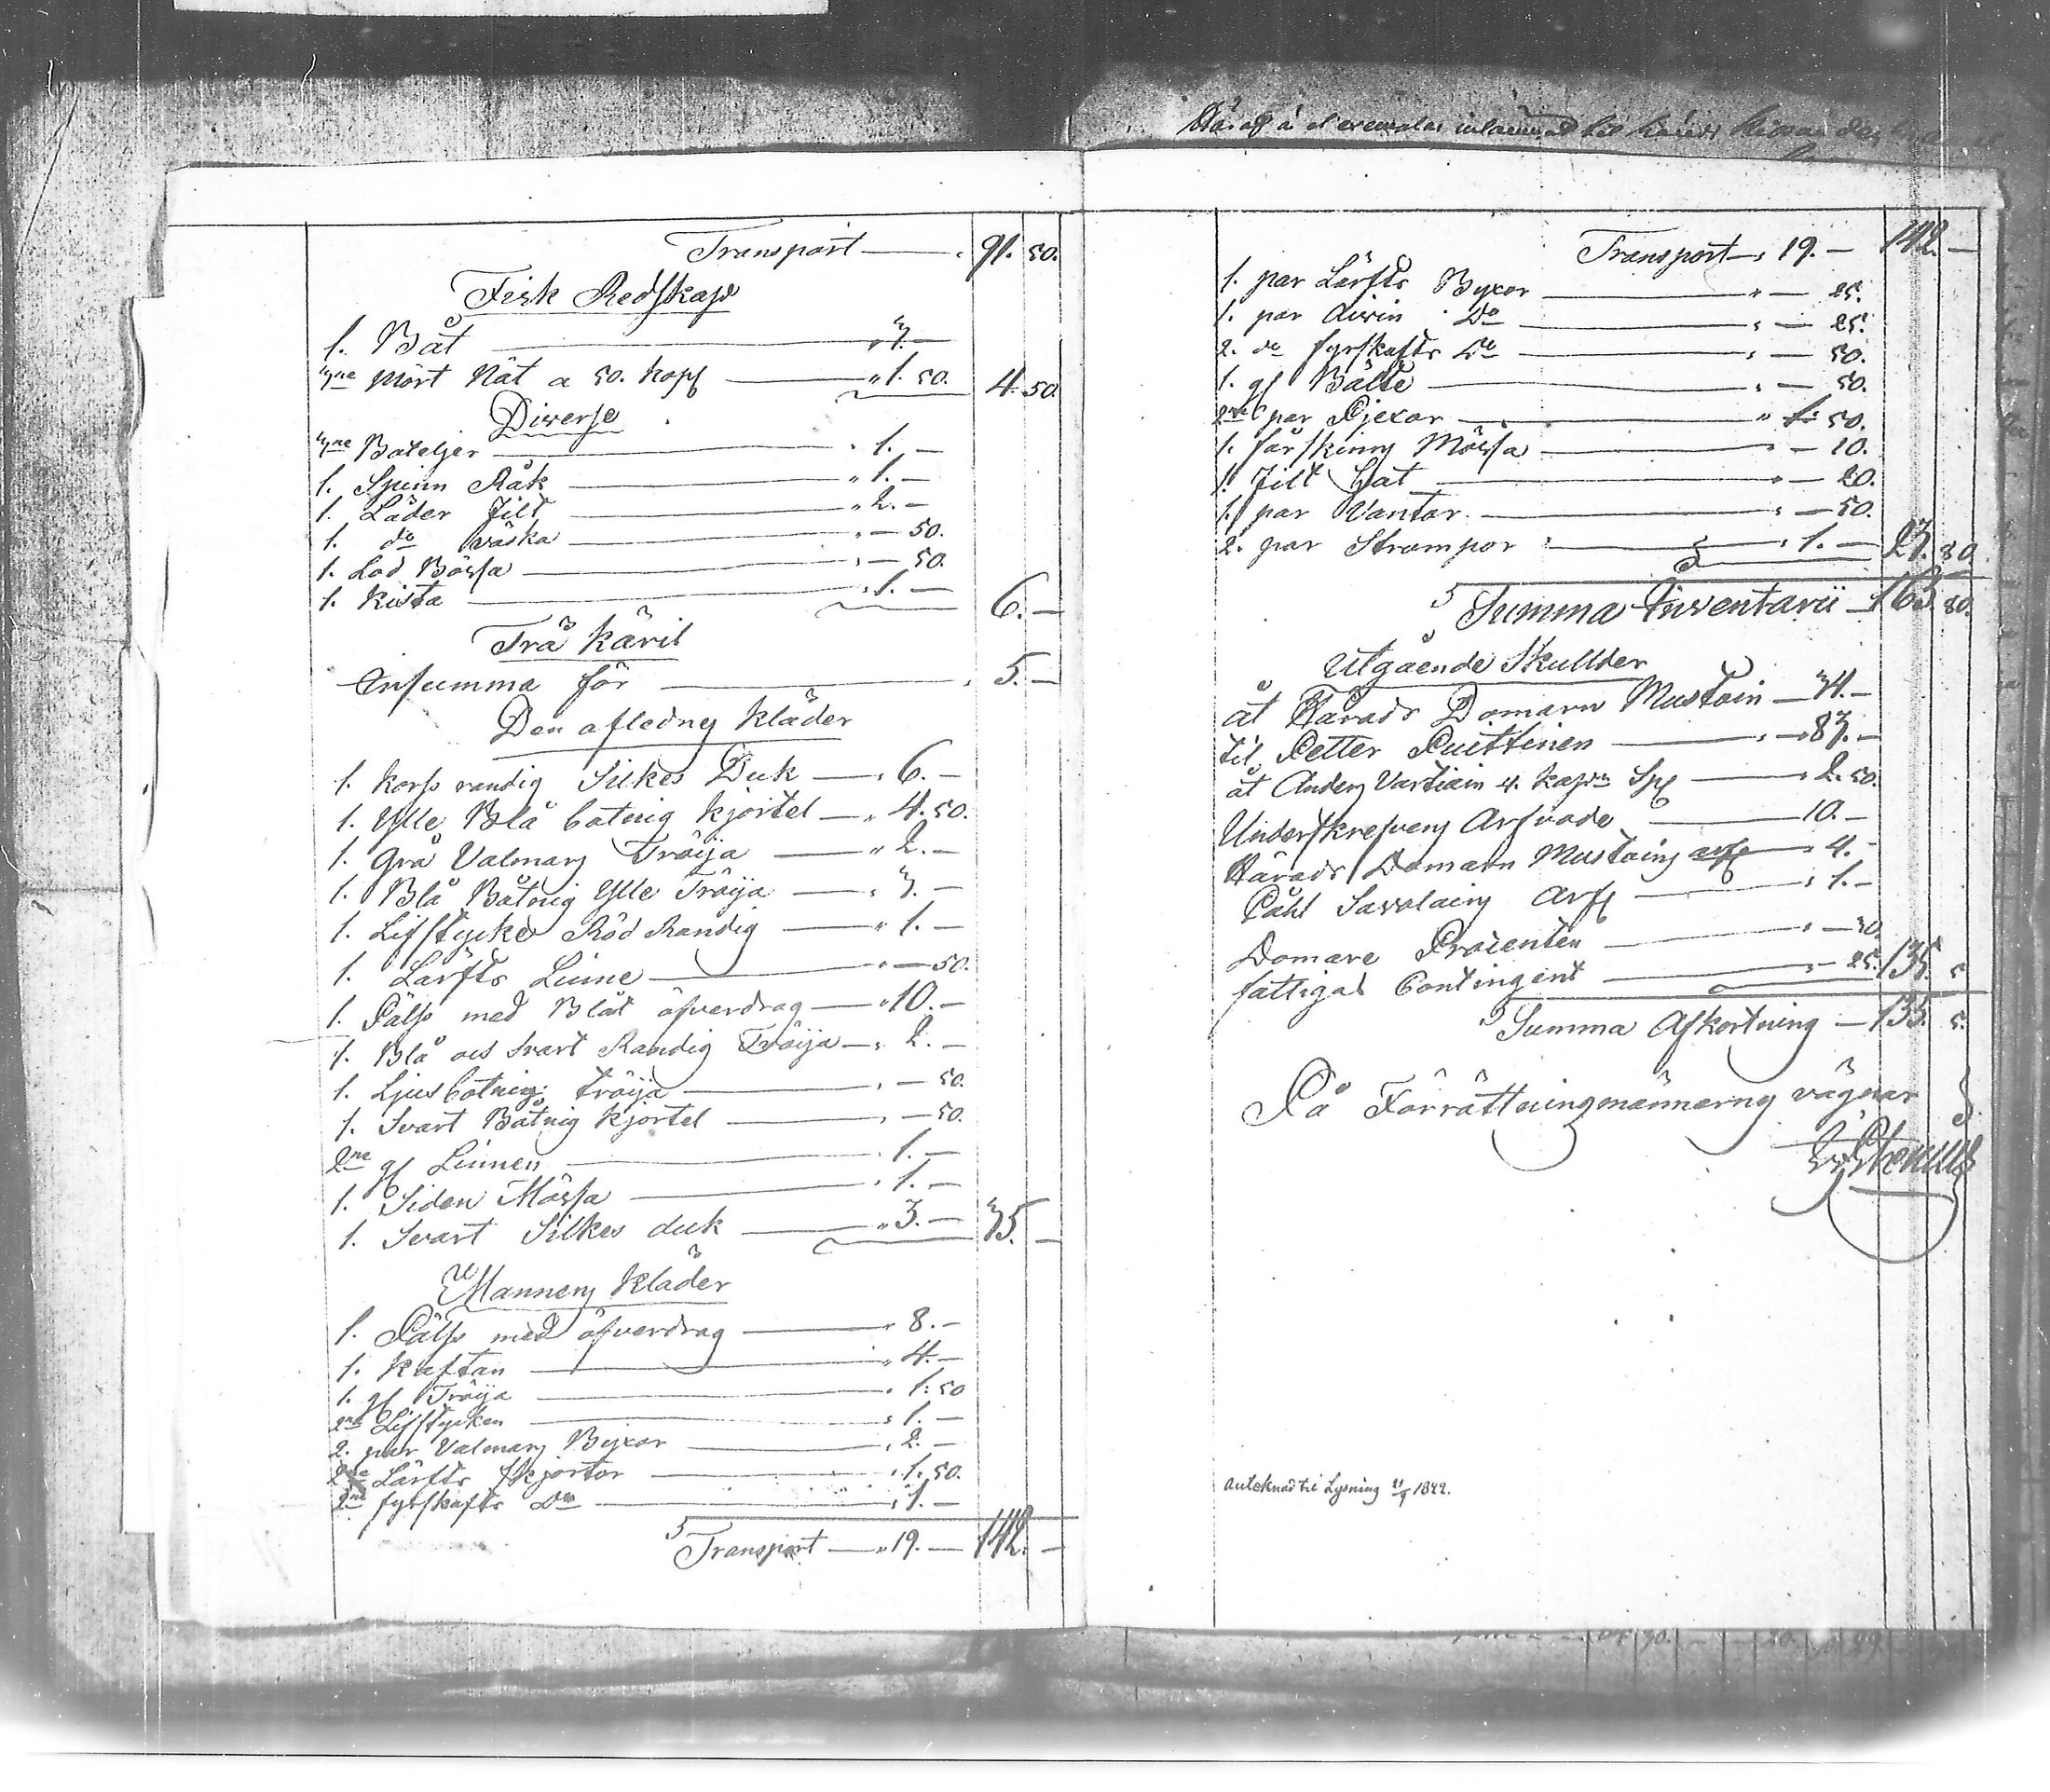 Transport — 91. 50.
Fisk Redskap
1. Båt — " 3. —
3ne Mört Nät a 50. kop — " 1. 50. 4. 50.
Diverse
3ne Boteljer — " 1. —
1. Spinn Råk — " 1. —
1. Läder Filt — " 2. —
1. do väska — " — 50.
1. Lod Bössa — " — 50.
1. Kista — " 1. — 6. —
Trä käril
Ensumma för — 5. —
Den aflednes kläder
1. Korss randig Silkes Duk — " 6. —
1. Ylle Blå botnig kjortel — " 4. 50.
1. Grå Valmars Tröija — " 2. —
1. Blå Båtnig Ylle Tröija — " 3. —
1. Lifstycke Röd Randig — " 1. —
1. Lärfts Linne — " — 50.
1. Pälss med Blåt öfverdrag — " 10. —
1. Blå och Svart Randig Tröija — " 2. —
1. Ljusbotnig tröija — " — 50.
1. Svart Båtnig Kjortel — " — 50.
2ne gl Linnen — " 1. —
1. Siden Mössa — " 1. —
1. Svart Silkes duk — " 3. — 35. —
Mannens kläder
1. Pälss med öfverdrag — " 8. —
1. Kaftan — " 4. —
1. gl Tröija — " 1. 50
2ne Lifstycken — " 1. —
2. par Valmars Byxor — " 2. —
2ne Lärfts skjortor — " 1. 50.
2ne fyrskafts Do — " 1. —
Transport — " 19. — 142. —
Transport — " 19. — 142. —
1. par Lärfts Byxor — " — 25.
1. par Aivin Do — " — 25.
2. do fyrskafts Do — " — 50.
1. gl Bälte — " — 50.
2ne par Pjexor — " 1: 50.
1. fårskinns Mössa — " — 10.
1. Filt Hat — " — 20.
1. par Vantar — " — 50.
2. par Strumpor — " 1. — 23. 80.
Summa Inventarii — 165. 80.
Utgående Skullder
åt Härads Domarn Mustoin — 34. —
til Petter Puittinen — " 83. —
åt Anders Vartiain 4. kapr Sp — " 2. 50.
Underskrefvens Arfvode — 10. —
Härads Domarn Mustoins arf — " 4. —
Påhl Savolains Arf — " 1. —
Domare Procenten — " — 30.
fattigas Contingent — " — 25. 135. 5.
Summa Afkortning — 135. 5.
På Förrättningsmännerns vägnar
anteknad til Lysning 21/9 1842.